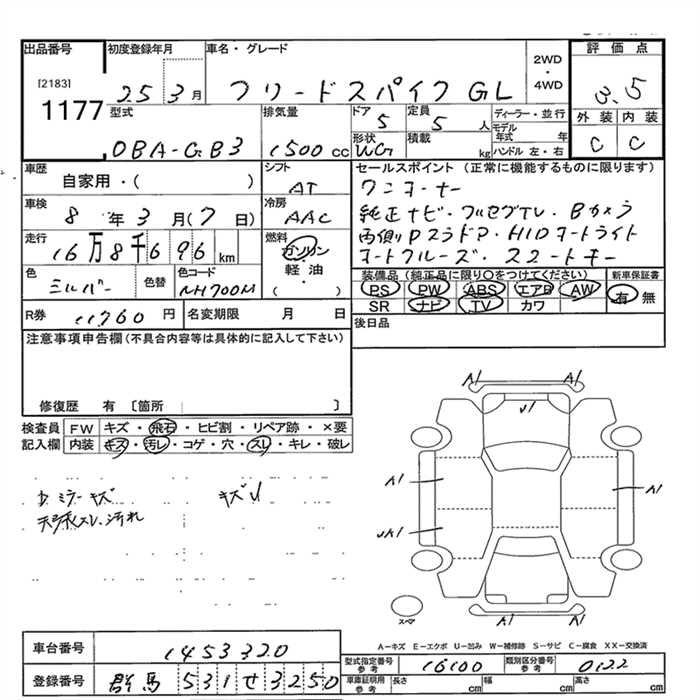 出品番号 初度登録年月 車名・グレード 2WD・4WD 評価点
[2183] 1177 25 3月 フリードスパイク GL 3.5
型式 排気量 ドア 5 定員 5 人 ディーラー・並行 外装 内装
DBA-GB3 1500 cc 形状 WG 積載 kg モデル年式 年 ハンドル 左・右 C C
車歴 シフト セールスポイント (正常に機能するものに限ります)
自家用・( ) AT ワンオーナー
車検 冷房 純正ナビ・フルセグTV・Bカメラ
8 年 3 月 (7 日) AAC 両側Pスラドア・HIDオートライト
走行 燃料 オートクルーズ・スマートキー
16万8千696 km ガソリン・軽・油・( )
色 色替 色コード 装備品 (純正品に限り○をつけてください) 新車保証書
シルバー NH700M PS PW ABS エアB AW 有 無
SR ナビ TV カワ
R券 11760 円 名変期限 月 日 後日品
注意事項申告欄(不具合内容等は具体的に記入して下さい)
修復歴 有 〔箇所 〕
検査員 FW キズ・飛石・ヒビ割・リペア跡・×要
記入欄 内装 キズ・汚レ・コゲ・穴・スレ・キレ・破レ
A1 A1
U1
A1
A1
UA1
A1 A1
スペア
D ミラーキズ キズU
天張スレ、汚れ
A-キズ E-エクボ U-凹み W-補修跡 S-サビ C-腐食 XX-交換済
車台番号 1453320
型式指定番号 参考 16100 類別区分番号 参考 0122
登録番号 群馬 531 せ 3250
車庫証明用 参考 長さ cm 幅 cm 高さ cm